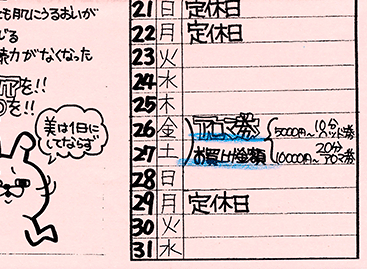 も肌にうるおいが
じる
張力がなくなった
を!!
を!!
美は1日に
してならず
21 日 定休日
22 月 定休日
23 火
24 水
25 木
26 金 アロマ券 5000円〜10分ハンド券
27 土 お買上げ金額 10000円〜20分アロマ券
28 日
29 月 定休日
30 火
31 水